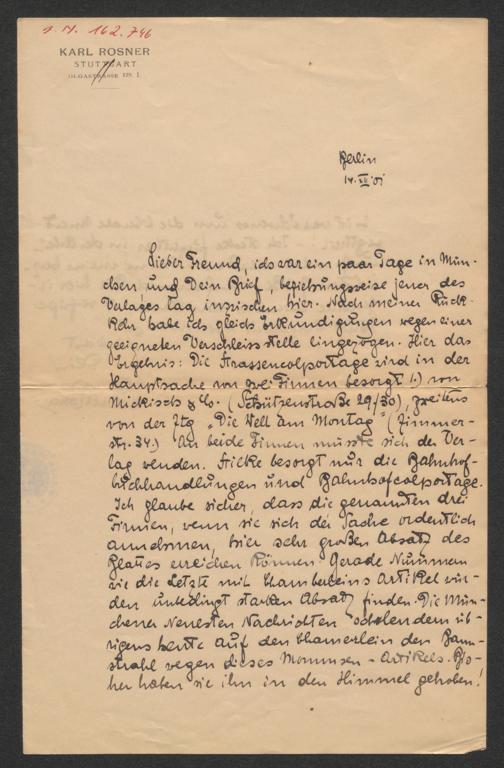 J. N. 162.746
KARL ROSNER
STUTTGART
OLGASTRASSE 129. I.
Berlin
14. XII 01
Lieber Freund, ich war ein paar Tage in Mün-
chen und Dein Brief, beziehungsweise jener des
Verlages lag inzwischen hier. Nach meiner Rück-
kehr habe ich gleich Erkundigungen wegen einer
geeigneten Verschleissstelle eingezogen. Hier das
Ergebnis: Die Strassencolportage wird in der
Hauptsache von zwei Firmen besorgt 1.) von
Mickisch & Co. (Schützenstraße 29/30), zweitens
von der Ztg „Die Welt am Montag" (Zimmer-
str. 34.) An beide Firmen müsste sich der Ver-
lag wenden. Stilke besorgt nur die Bahnhof-
buchhandlungen und Bahnhofcolportage.
Ich glaube sicher, dass die genannten drei
Firmen, wenn sie sich der Sache ordentlich
annehmen, hier sehr großen Absatz des
Blattes erreichen können. Gerade Nummern
wie die Letzte mit Chamberlains Artikel wür-
den unbedingt starken Absatz finden. Die Mün-
chener Neuesten Nachrichten schleudern üb-
rigens heute auf den Chamerlein den Bann-
strahl wegen dieses Mommsen-Artikels. Bis-
her haben sie ihn in den Himmel gehoben!